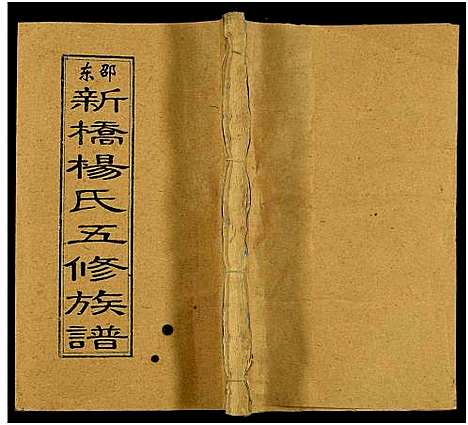 邵东
新橋楊氏五修族譜